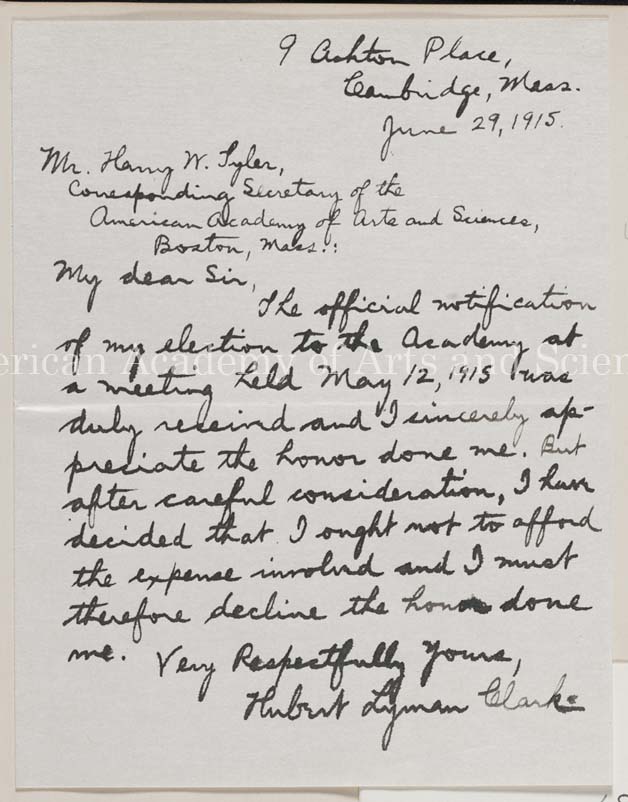 9 Ashton Place,
Cambridge, Mass.
June 29, 1915.
Mr. Harry W. Tyler,
Corresponding Secretary of the
American Academy of Arts and Sciences,
Boston, Mass.:
My dear Sir,
The official notification
of my election to the Academy at
erican Academy of Arts and Scien
a meeting held May 12, 1915 was
duly received and I sincerely ap-
preciate the honor done me. But
after careful consideration, I have
decided that I ought not to afford
the expense involved and I must
therefore decline the honor done
me. Very Respectfully Yours,
Hubert Lyman Clark